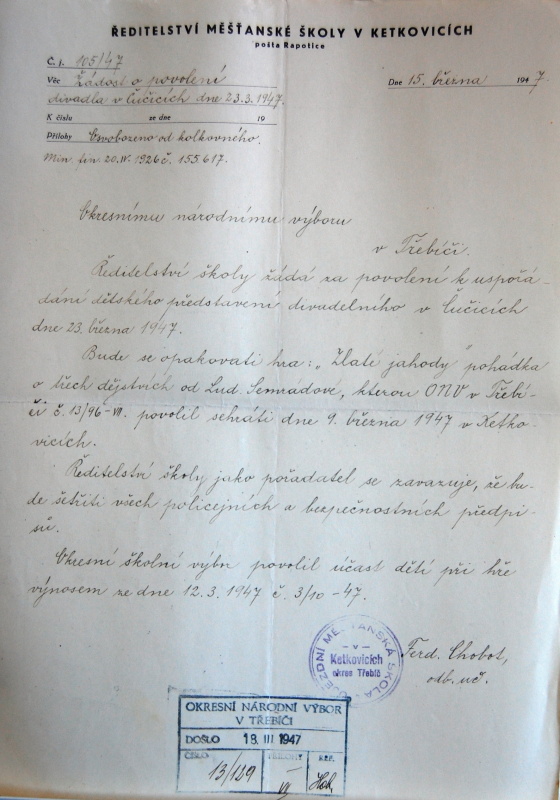 ŘEDITELSTVÍ MĚŠŤANSKÉ ŠKOLY V KETKOVICÍCH
pošta Rapotice
Č. j. 105/47
Věc Žádost o povolení
divadla v Lučicích dne 23.3.1947.
Dne 15. března 1947.
K číslu ze dne 19
Přílohy Osvobozeno od kolkovného.
Min. fin. 20.IV.1926 č. 155.617.
Okresnímu národnímu výboru
v Třebíči.
Ředitelství školy žádá za povolení k uspořá-
dání dětského představení divadelního v Lučicích
dne 23. března 1947.
Bude se opakovati hra: „Zlaté jahody" pohádka
o třech dějstvích od Lud. Semrádové, kterou ONV v Třebí-
či č. 13/96-VII. povolil sehráti dne 9. března 1947 v Ketko-
vicích.
Ředitelství školy jako pořadatel se zavazuje, že bu-
de šetřiti všech policejních a bezpečnostních předpi-
sů.
Okresní školní výbor povolil účast dětí při hře
výnosem ze dne 12.3.1947 č. 3/10-47.
ÚJEZDNÍ MĚŠŤANSKÁ ŠKOLA
v
Ketkovicích
okres Třebíč
Ferd. Chobot,
odb. uč.
OKRESNÍ NÁRODNÍ VÝBOR
V TŘEBÍČI
DOŠLO 18 III 1947
ČÍSLO PŘÍLOHY REF.
13/189 VII